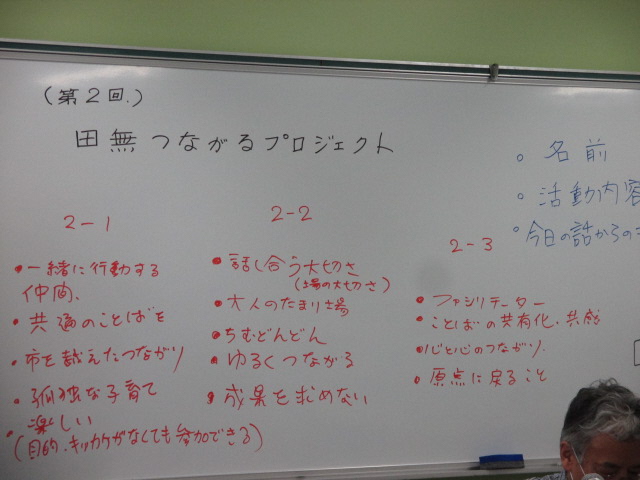 (第2回.)
田無つながるプロジェクト
2-1
・一緒に行動する
仲間、
・共通のことばを
・市を越えたつながり
・孤独な子育て
・楽しい
(目的・キッカケがなくても参加できる)
2-2
・話し合う大切さ
(場の大切さ)
・大人のたまり場
・ちむどんどん
・ゆるくつながる
・成果を求めない
2-3
・ファシリテーター
・ことばの共有化、共感
・心と心のつながり
・原点に戻ること
。名前
。活動内容
。今日の話からの